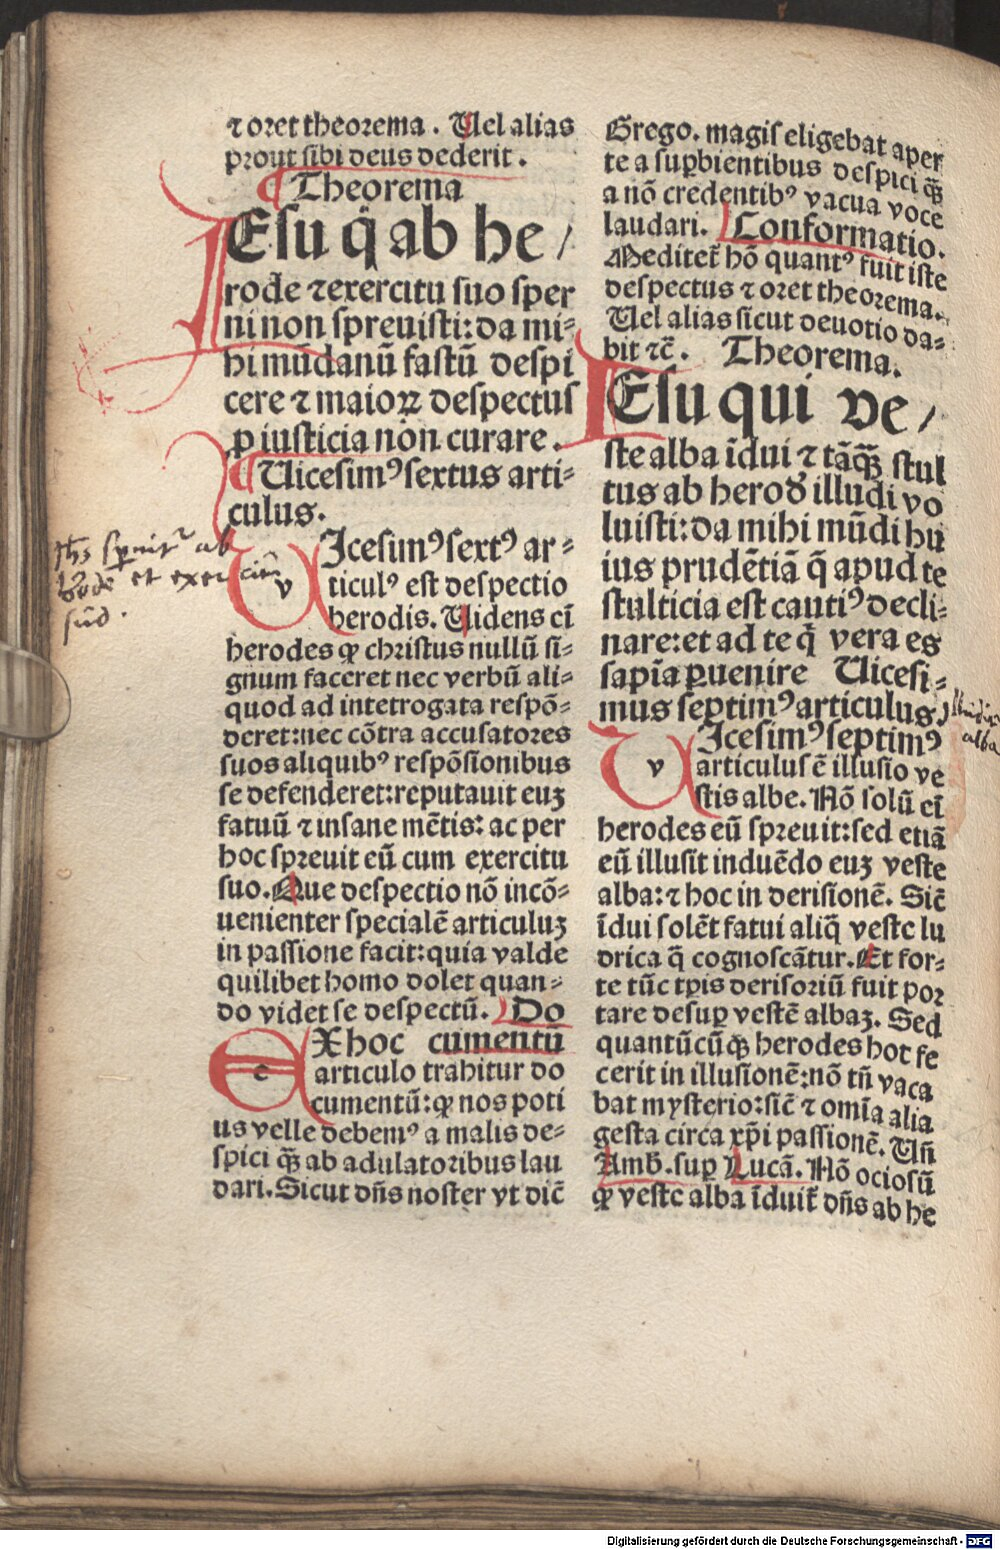 ⁊ oret theorema. Uel alias
prout sibi deus dederit.
Theorema
IEsu q̄ ab he/
rode ⁊ exercitu suo sper
ni non spreuisti: da mi-
hi mūdanū fastū despi
cere ⁊ maioꝝ despectus
ꝓ iusticia non curare.
Uicesimꝰ sextus arti-
culus.
vIcesimꝰ sextꝰ ar-
ticulꝰ est despectio
herodis. Uidens ei̅
herodes ꝙ christus nullū si-
gnum faceret nec verbū ali-
quod ad intetrogata respō-
deret: nec cōtra accusatores
suos aliquibꝰ respōsionibus
se defenderet: reputauit euꝫ
fatuū ⁊ insane mētis: ac per
hoc spreuit eū cum exercitu
suo. Que despectio nō incō-
uenienter specialē articuluꝫ
in passione facit: quia valde
quilibet homo dolet quan-
do videt se despectū. Do
eXhoc cumentū
articulo trahitur do
cumentū: ꝙ nos poti
us velle debemꝰ a malis de-
spici q̄ꝫ ab adulatoribus lau
dari. Sicut dn̄s noster vt dic̄
Grego. magis eligebat aper
te a suꝑbientibus despici q̄ꝫ
a nō credentibꝰ vacua voce
laudari. Conformatio.
Meditet̄ hō quantꝰ fuit iste
despectus ⁊ oret theorema.
Uel alias sicut deuotio da-
bit ⁊c̄. Theorema.
IEsu qui ve/
ste alba īdui ⁊ tāq̄ꝫ stul
tus ab herod̄ illudi vo
luisti: da mihi mūdi hu
ius prudētiā q̄ apud te
stulticia est cautiꝰ decli-
nare: et ad te q̄ vera es
sapīa ꝑuenire Uicesi-
mus septimꝰ articulus.
vIcesimꝰ septimꝰ
articulus ē illusio ve
stis albe. Nō solū ei̅
herodes eū spreuit: sed etiā
eū illusit induēdo euꝫ veste
alba: ⁊ hoc in derisionē. Sic̄
īdui solēt fatui aliq̄ veste lu
drica q̄ cognoscātur. Et for-
te tūc tp̄is derisoriū fuit por
tare desuꝑ vestē albaꝫ. Sed
quantūcūq̄ꝫ herodes hoc fe
cerit in illusionē: nō tn̄ vaca
bat mysterio: sic̄ ⁊ omīa alia
gesta circa xp̄i passionē. Un̄
Amb̄. suꝑ Lucā. Nō ociosū
ꝙ veste alba īduit̄ dn̄s ab he
Ihs sp̄nitʳ ab
herode et exercitu
suo.
alba
Digitalisierung gefördert durch die Deutsche Forschungsgemeinschaft - DFG